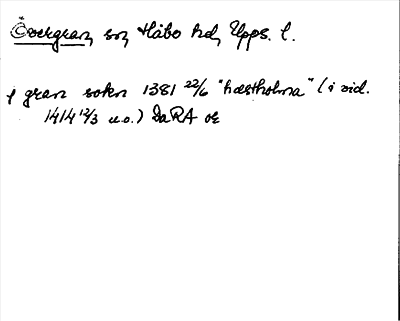 Övergran, sn, Håbo hd, Upps. l.
j gran sokn 1381 22/6 "hæstholma" (i vid.
1414 12/3 u.o.) DaRA or